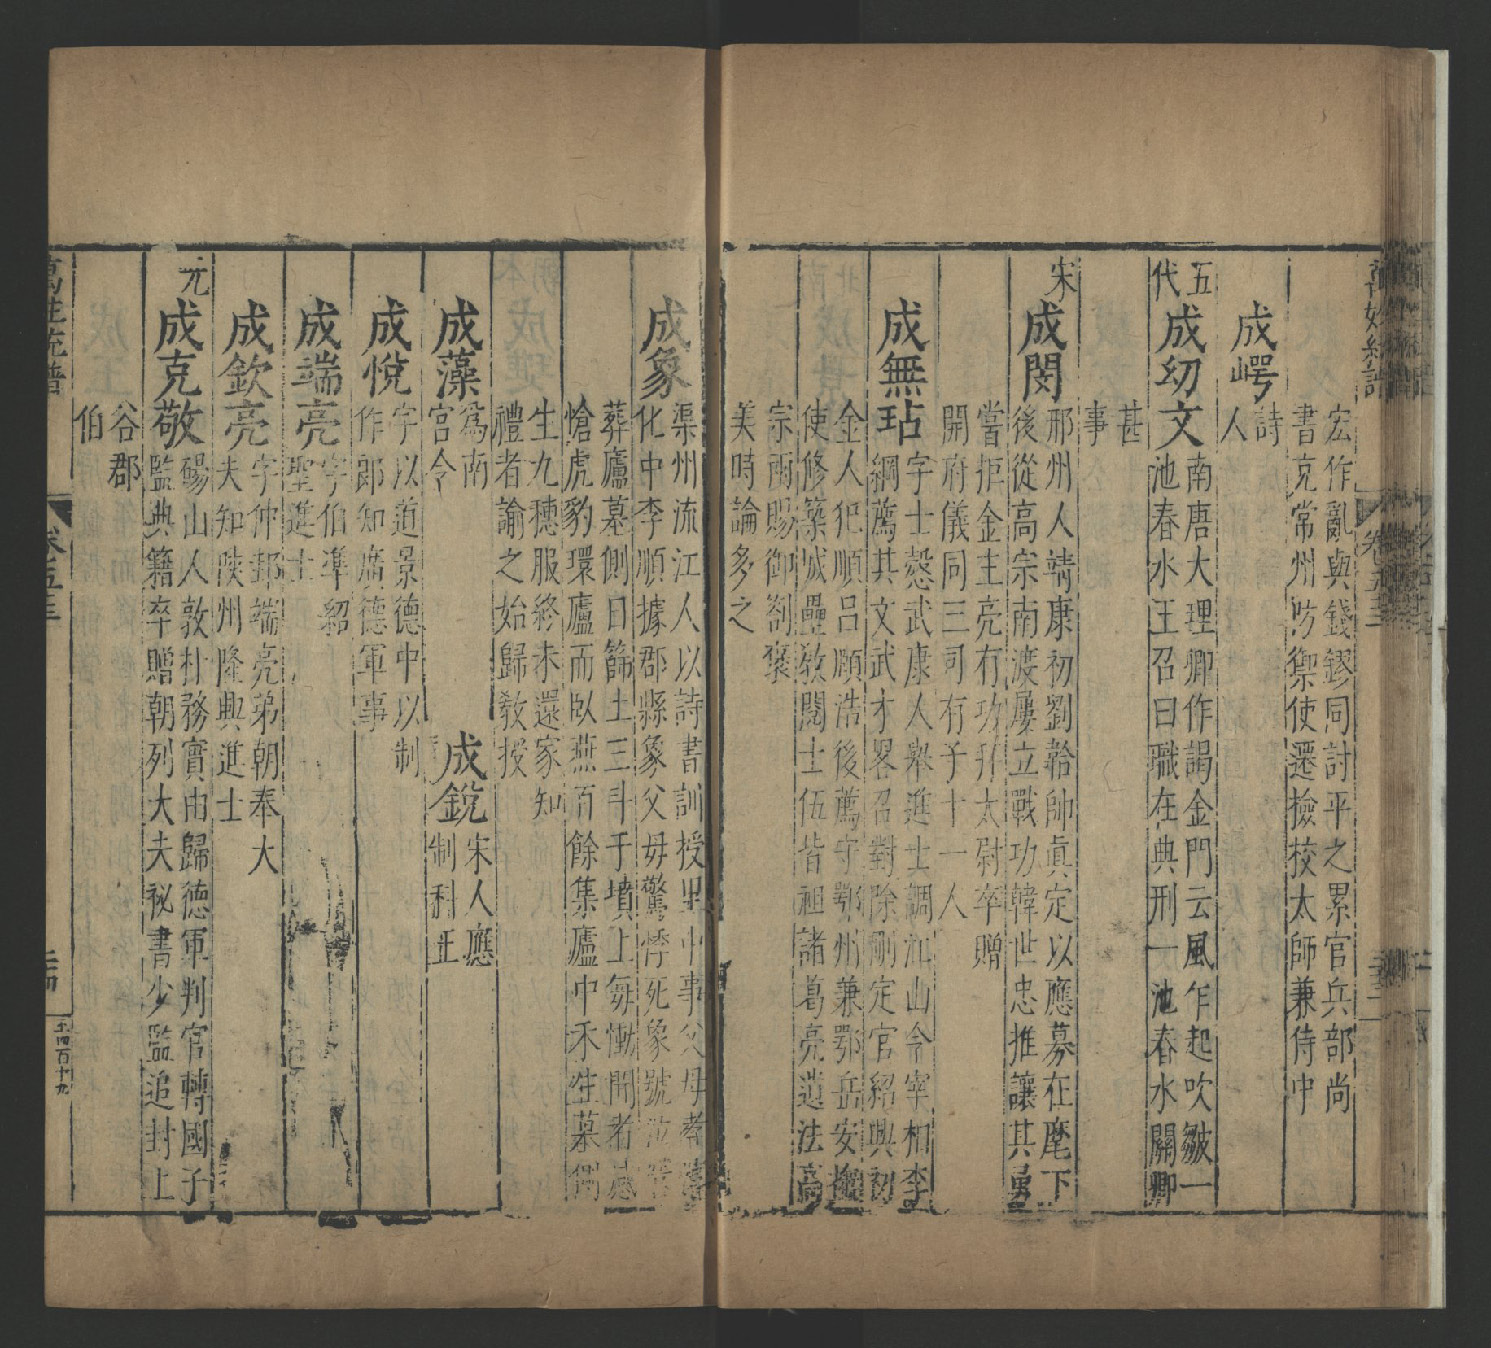 宏作亂與錢鏐同討平之累官兵部尚
書充常州防禦使遷撿校太師兼侍中
成㟧
詩
人
五
代
成㓜文
南唐大理卿作謁金門云風乍起吹皺一
池春水王召曰職在典刑一池春水關卿
甚
事
宋
成閔
邢州人靖康初劉韐帥真定以應募在麾下
後從高宗南渡屢立戰功韓世忠推讓其勇
嘗拒金主亮有功拜太尉卒贈
開府儀同三司有子十一人
成無玷
字士愨武康人舉進士調江山令宰相李
綱薦其文武才畧召對除刪定官紹興初
金人犯順吕頤浩後薦守鄂州兼鄂岳安撫
使修築城壘敎閱士伍皆祖諸葛亮遺法高
宗兩賜御劄褒
美時論多之
成象
渠州流江人以詩書訓授里中事父母孝
化中李順據郡縣象父母驚悸死象號泣
葬廬墓側日篩土三斗于墳上每慟聞者
愴虎豹環廬而臥燕百餘集廬中禾生墓側
生九穗服終未還家知
禮者諭之始歸敎授
成藻
爲南
宮令
成銳
宋人應
制科正
成悅
字以道景德中以制
作郎知廣德軍事
成端亮
字伯準紹
聖進士
成欽亮
字仲
端亮弟朝奉大
夫知陝州隆興進士
元
成克敬
碭山人敦朴務實由歸德軍判官轉國子
監典籍卒贈朝列大夫秘書少監追封上
谷郡
伯
萬姓統譜
卷五十三